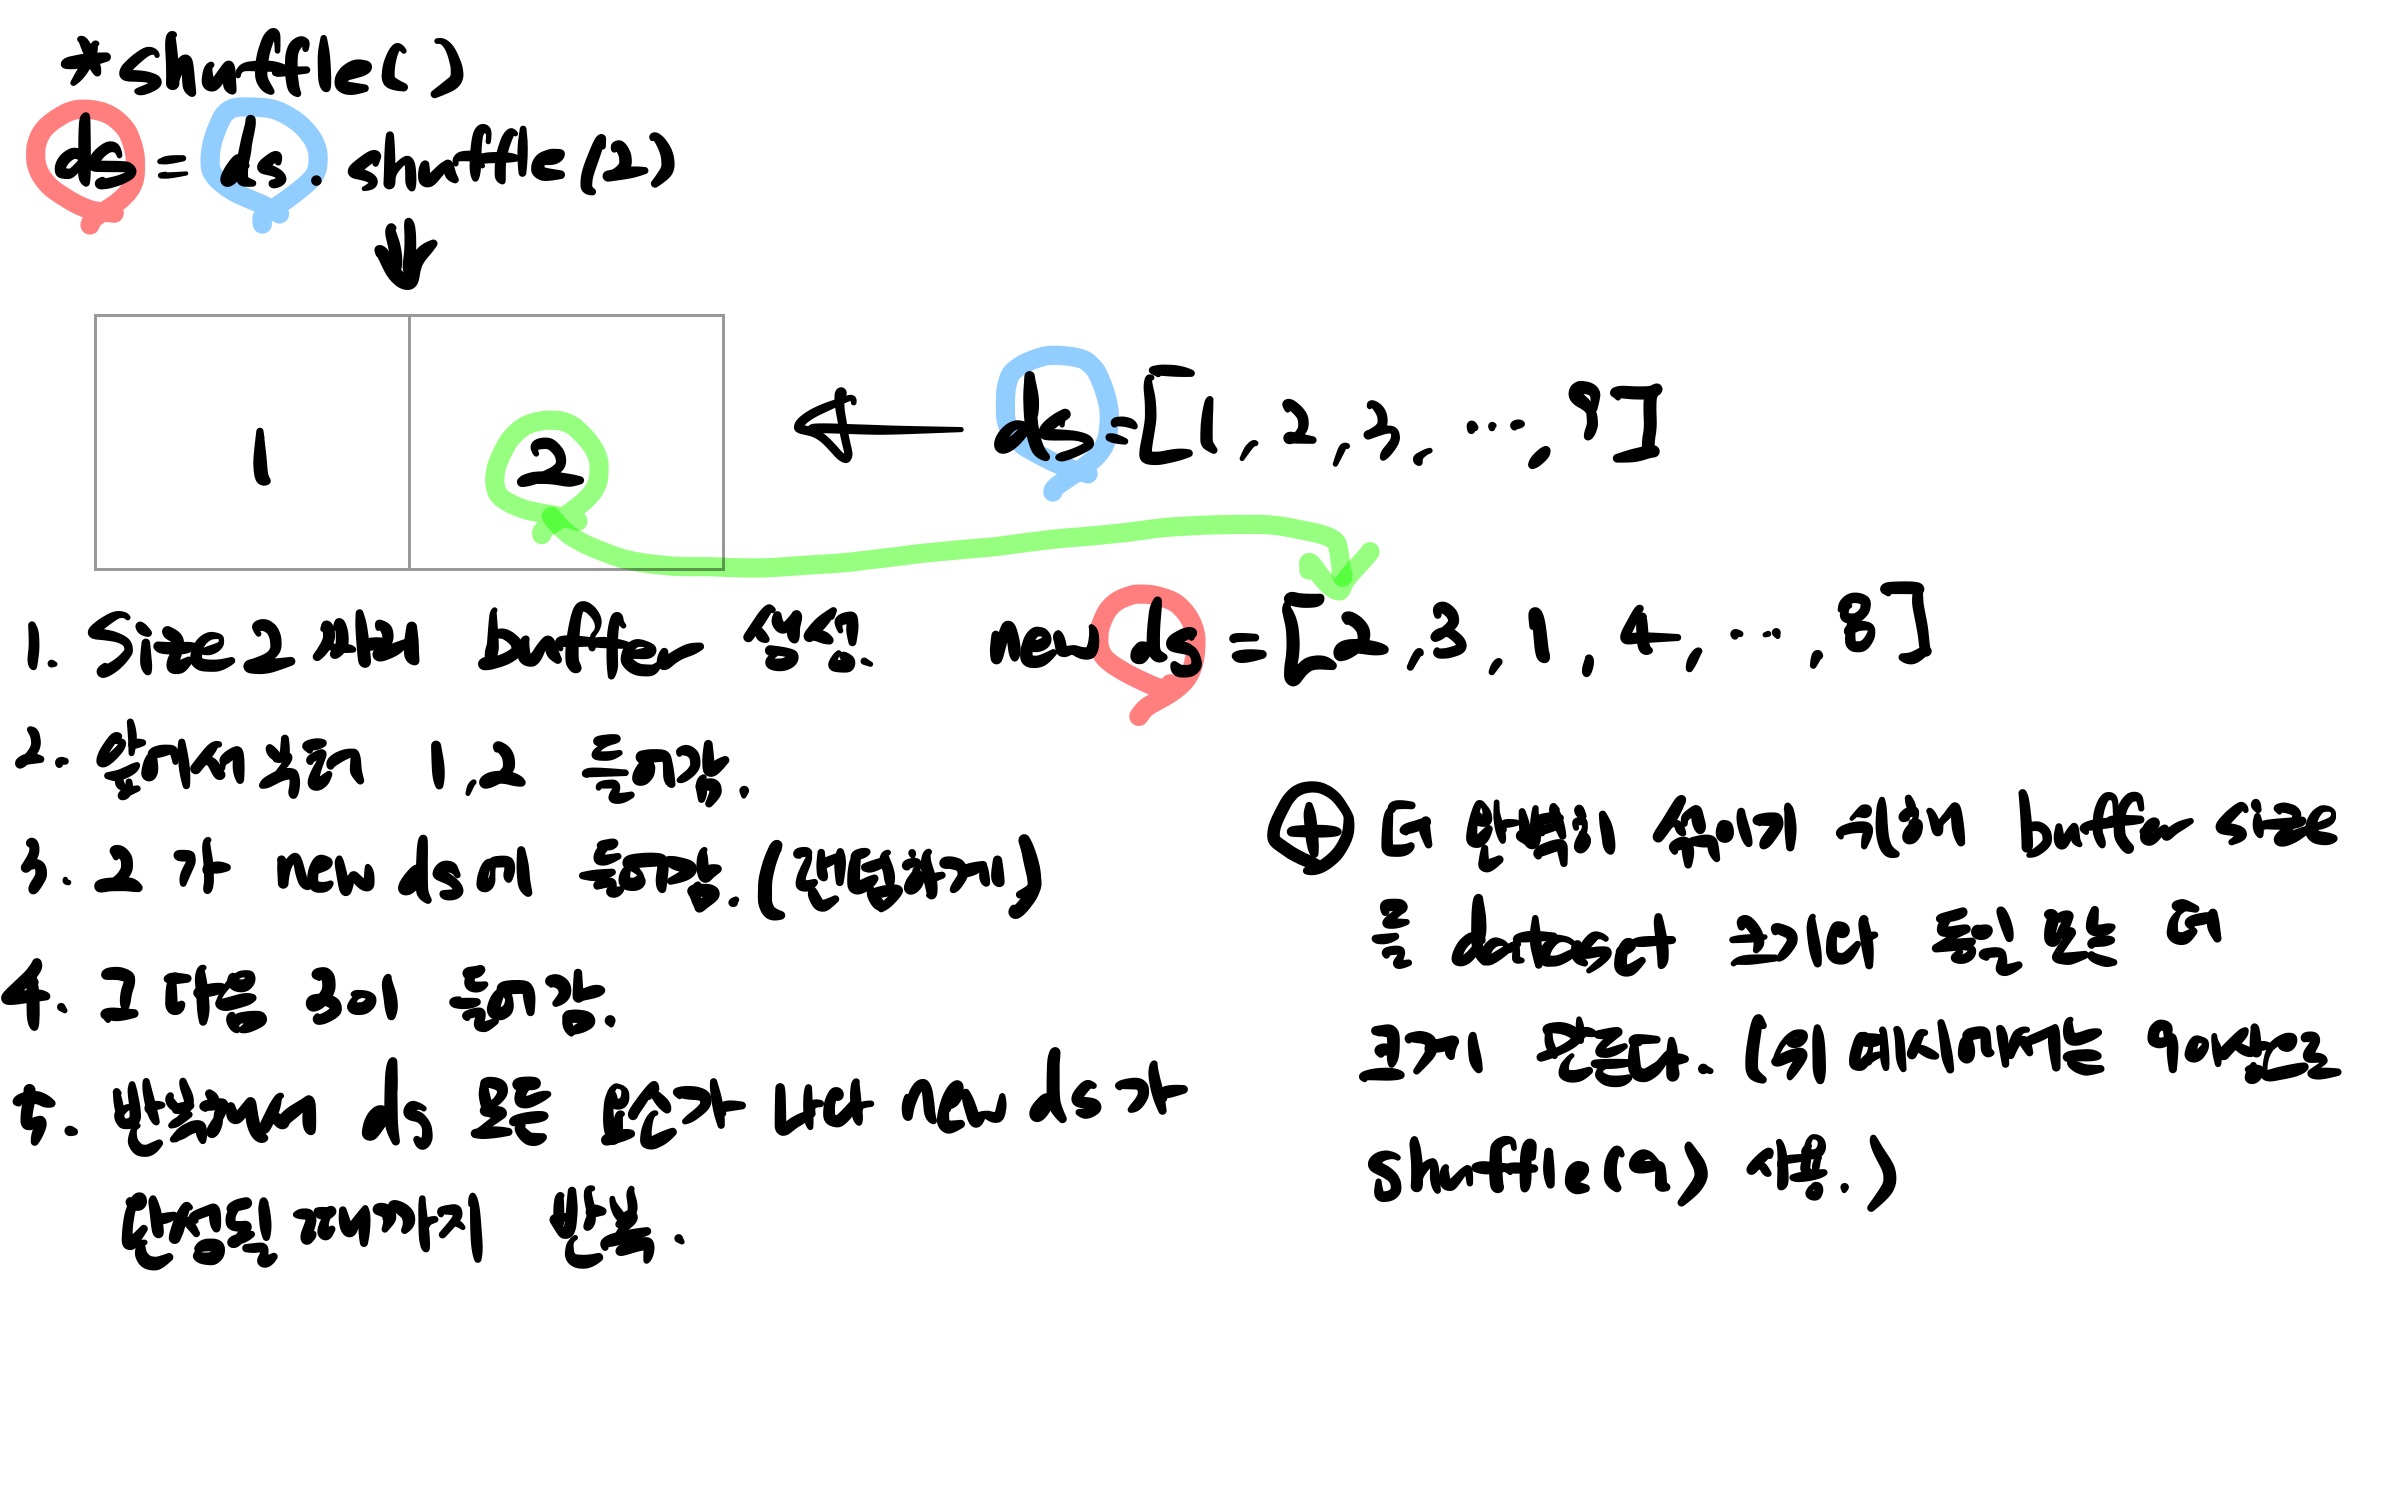 *shuffle()
ds = ds. shuffle(2)
1 2 ds=[1, 2, 3, ..., 9]
1. Size 2 짜리 buffer 생성. new ds = [2, 3, 1, 4, ..., 8]
2. 순서대로 1,2 들어감.
3. 2가 new ds에 들어감. (랜덤하게)
4. 그 다음 3이 들어감.
5. 반복해서 ds 모든 원소가 나와 new ds가
완성될 때까지 반복.
⊕ 더 완벽히 섞이기 위해 buffer size
를 dataset 크기와 동일 또는 더
크게 잡는다. (위 예시에서는 9이상으로
shuffle(9) 사용.)